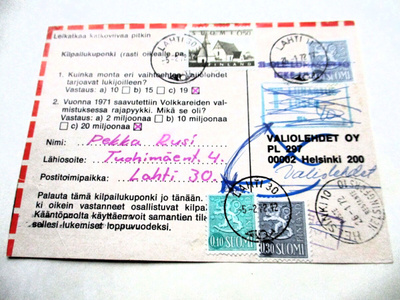 Leikatkaa katkoviivaa pitkin
Kilpailukuponki (rasti oikealle pa
1. Kuinka monta eri vaihtoehtoa Valiolehdet
tarjoavat lukijoilleen?
Vastaus: a) 10 b) 15 c) 19
2. Vuonna 1971 saavutettiin Volkkareiden val-
mistuksessa rajapyykki. Mikä se oli?
Vastaus: a) 2 miljoonaa b) 10 miljoonaa
c) 20 miljoonaa
Nimi: Pekka Rusi
Lähiosoite: 4.
Postitoimipaikka: Lahti 30.
Palauta tämä kilpailukuponki jo tänään.
ki oikein vastanneet osallistuvat kilpai
Kääntöpuolta käyttäen voit samantien til
sellesi lukemiset loppuvuodeksi.
SUOMI
LAHTI
VALIOLEHDET OY
PL 297
00002 Helsinki 200
Valiolehdet
LAHTI 30
-5-2.72.12
0,10 SUOMI
0,30 SUOMI
HELSINKI